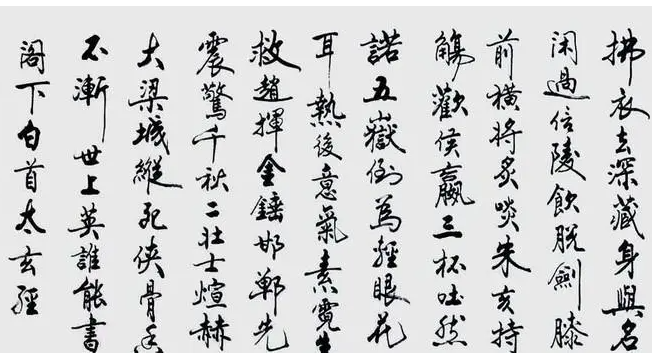 拂衣去深藏身與名
闲過信陵飲脱劍膝
前橫將炙啖朱亥持
觴勸侯嬴三杯吐然
諾五嶽倒為輕眼花
耳熱後意氣素霓生
救趙揮金錘邯鄲先
震驚千秋二壮士煊赫
大梁城縱死俠骨香
不漸世上英誰能書
閣下白首太玄經